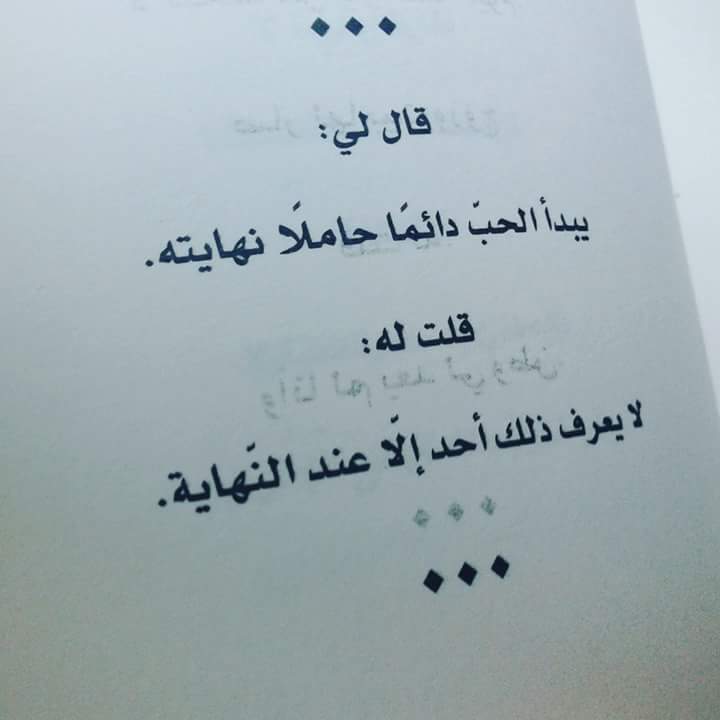 قال لي:
يبدأ الحبّ دائمًا حاملًا نهايته.
قلت له:
لا يعرف ذلك أحد إلّا عند النّهاية.